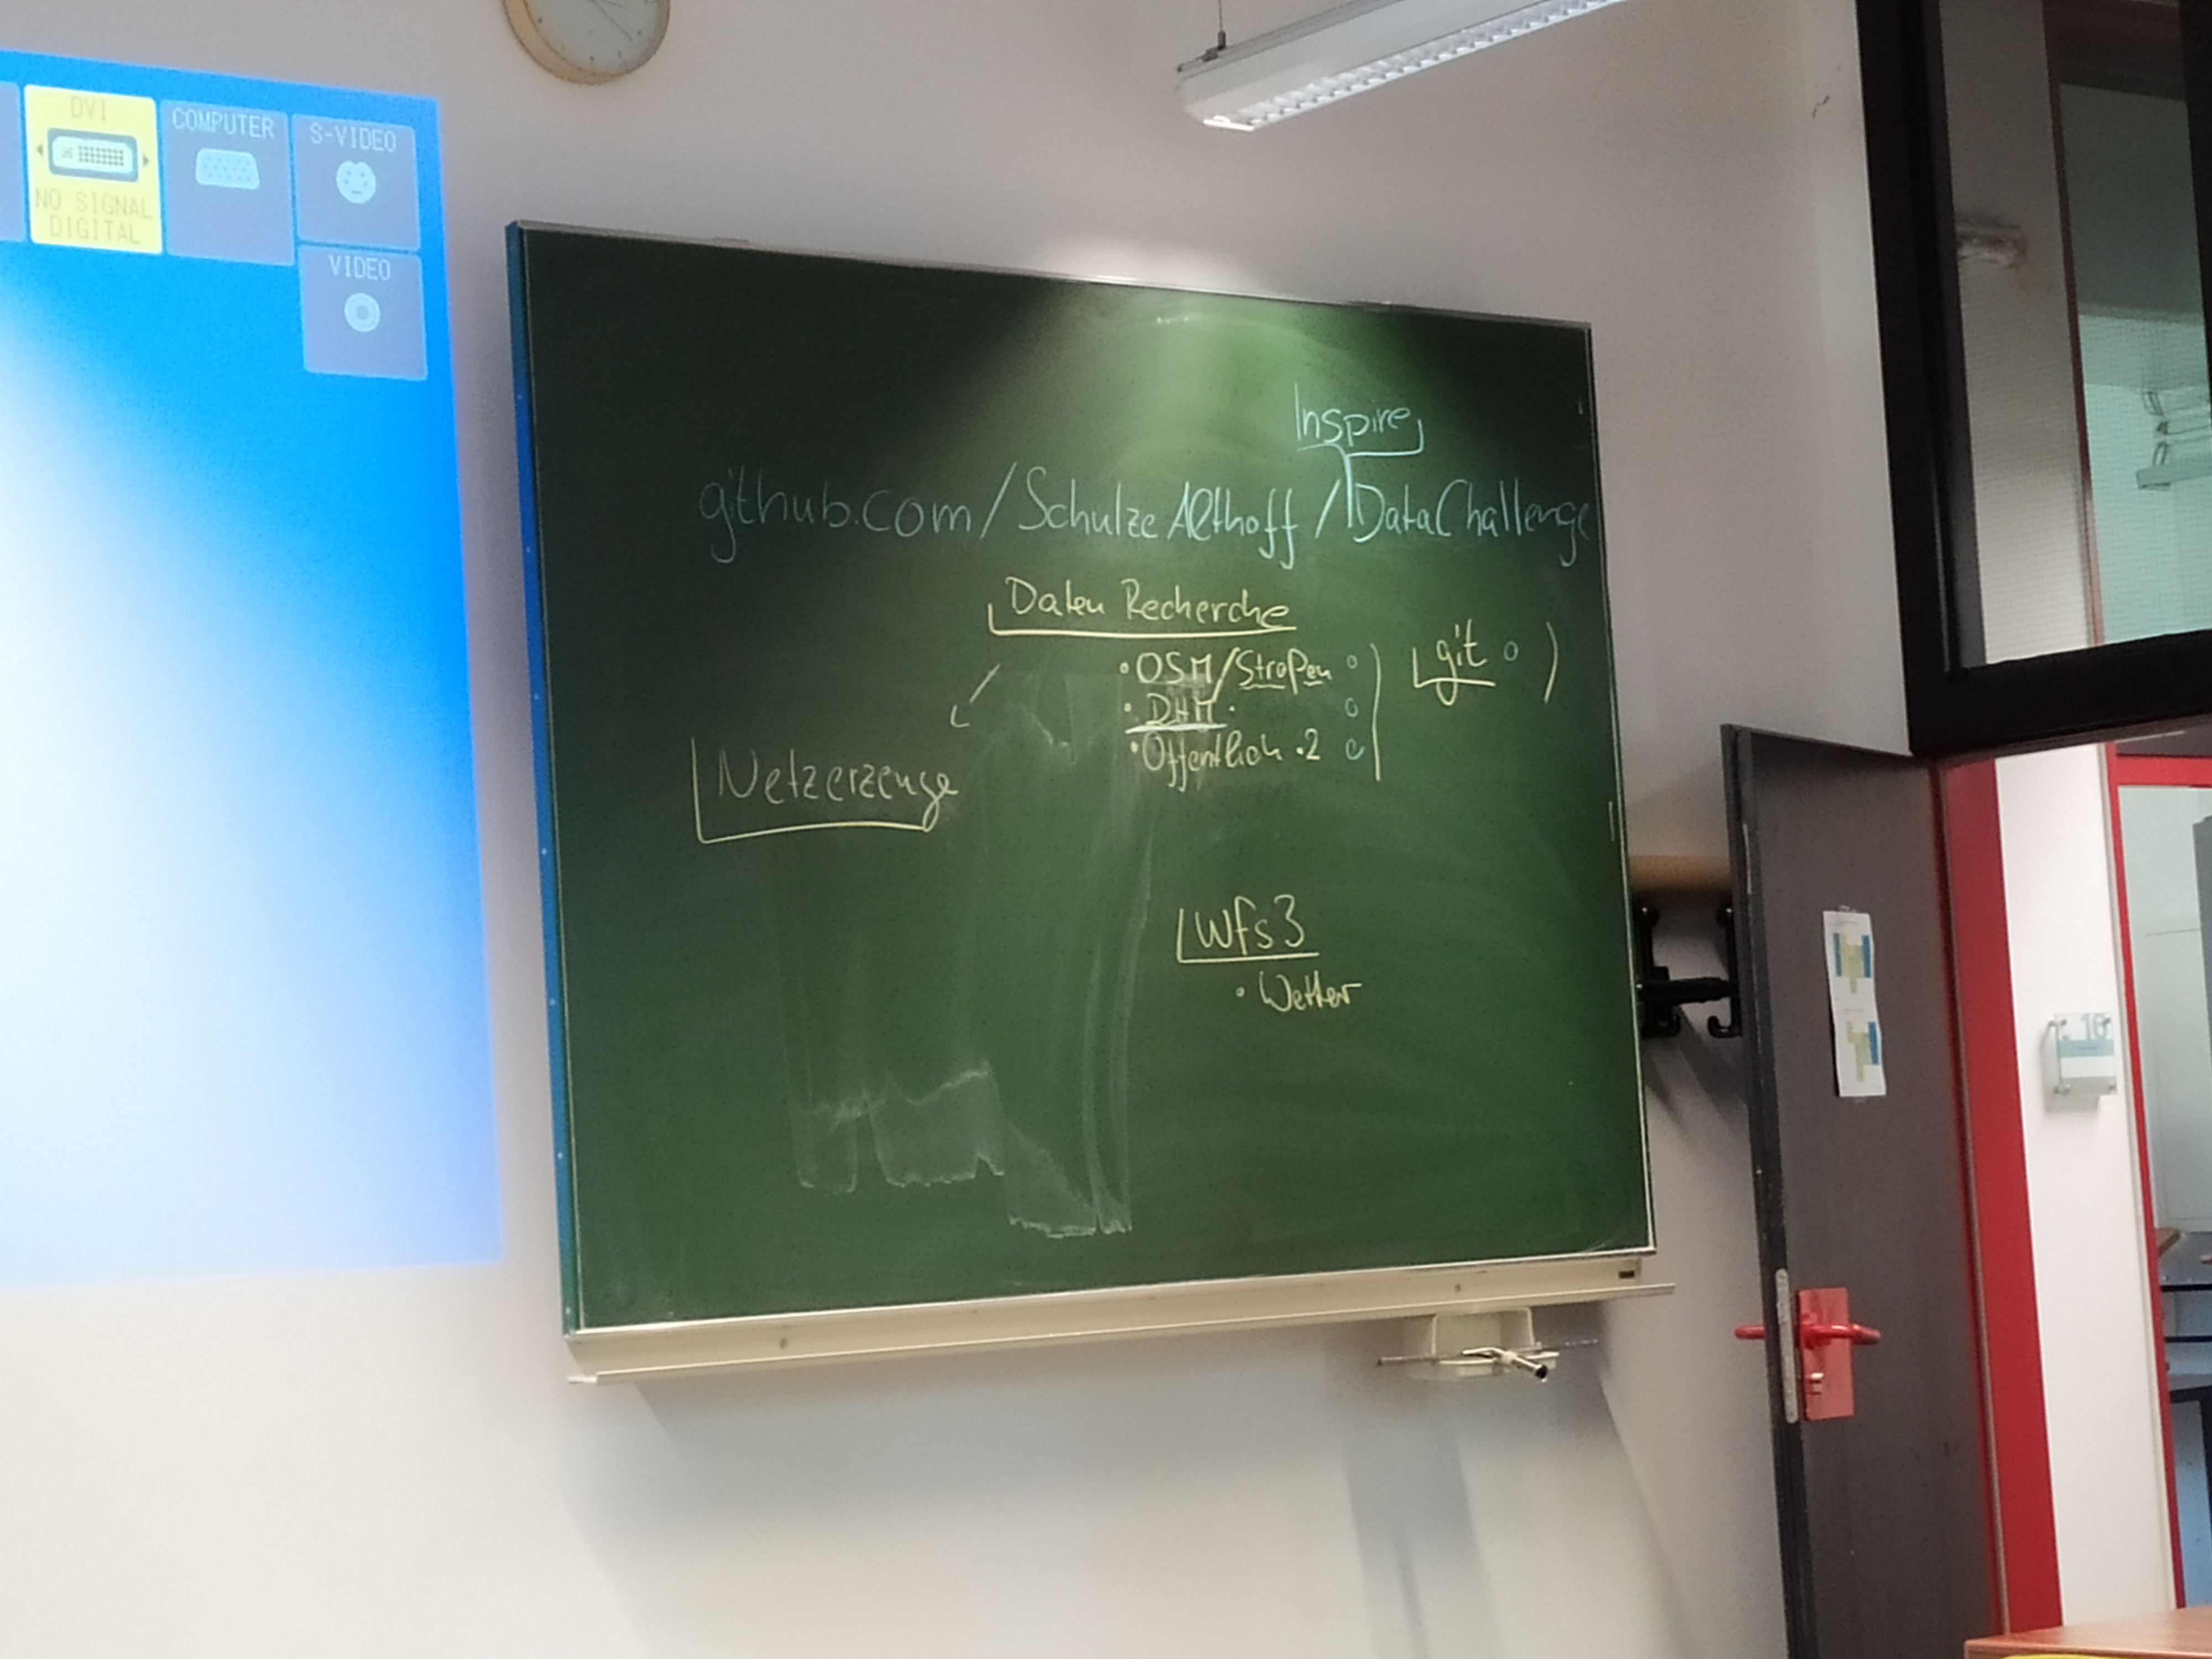 DVI
NO SIGNAL
DIGITAL
COMPUTER
S-VIDEO
VIDEO
Inspire
github.com/SchulzeAlthoff/DataChallenge
Daten Recherche
• OSM/Straßen
• DHM •
• Öffentlich • 2
git
Netzerzeuge
Wfs3
• Wetter
16